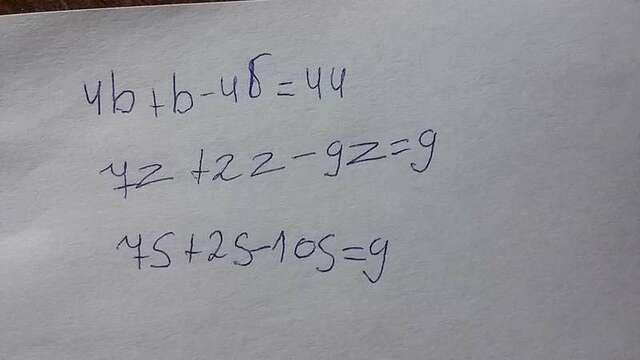 4b+b-4b=44
7z+2z-9z=9
7s+2s-10s=9